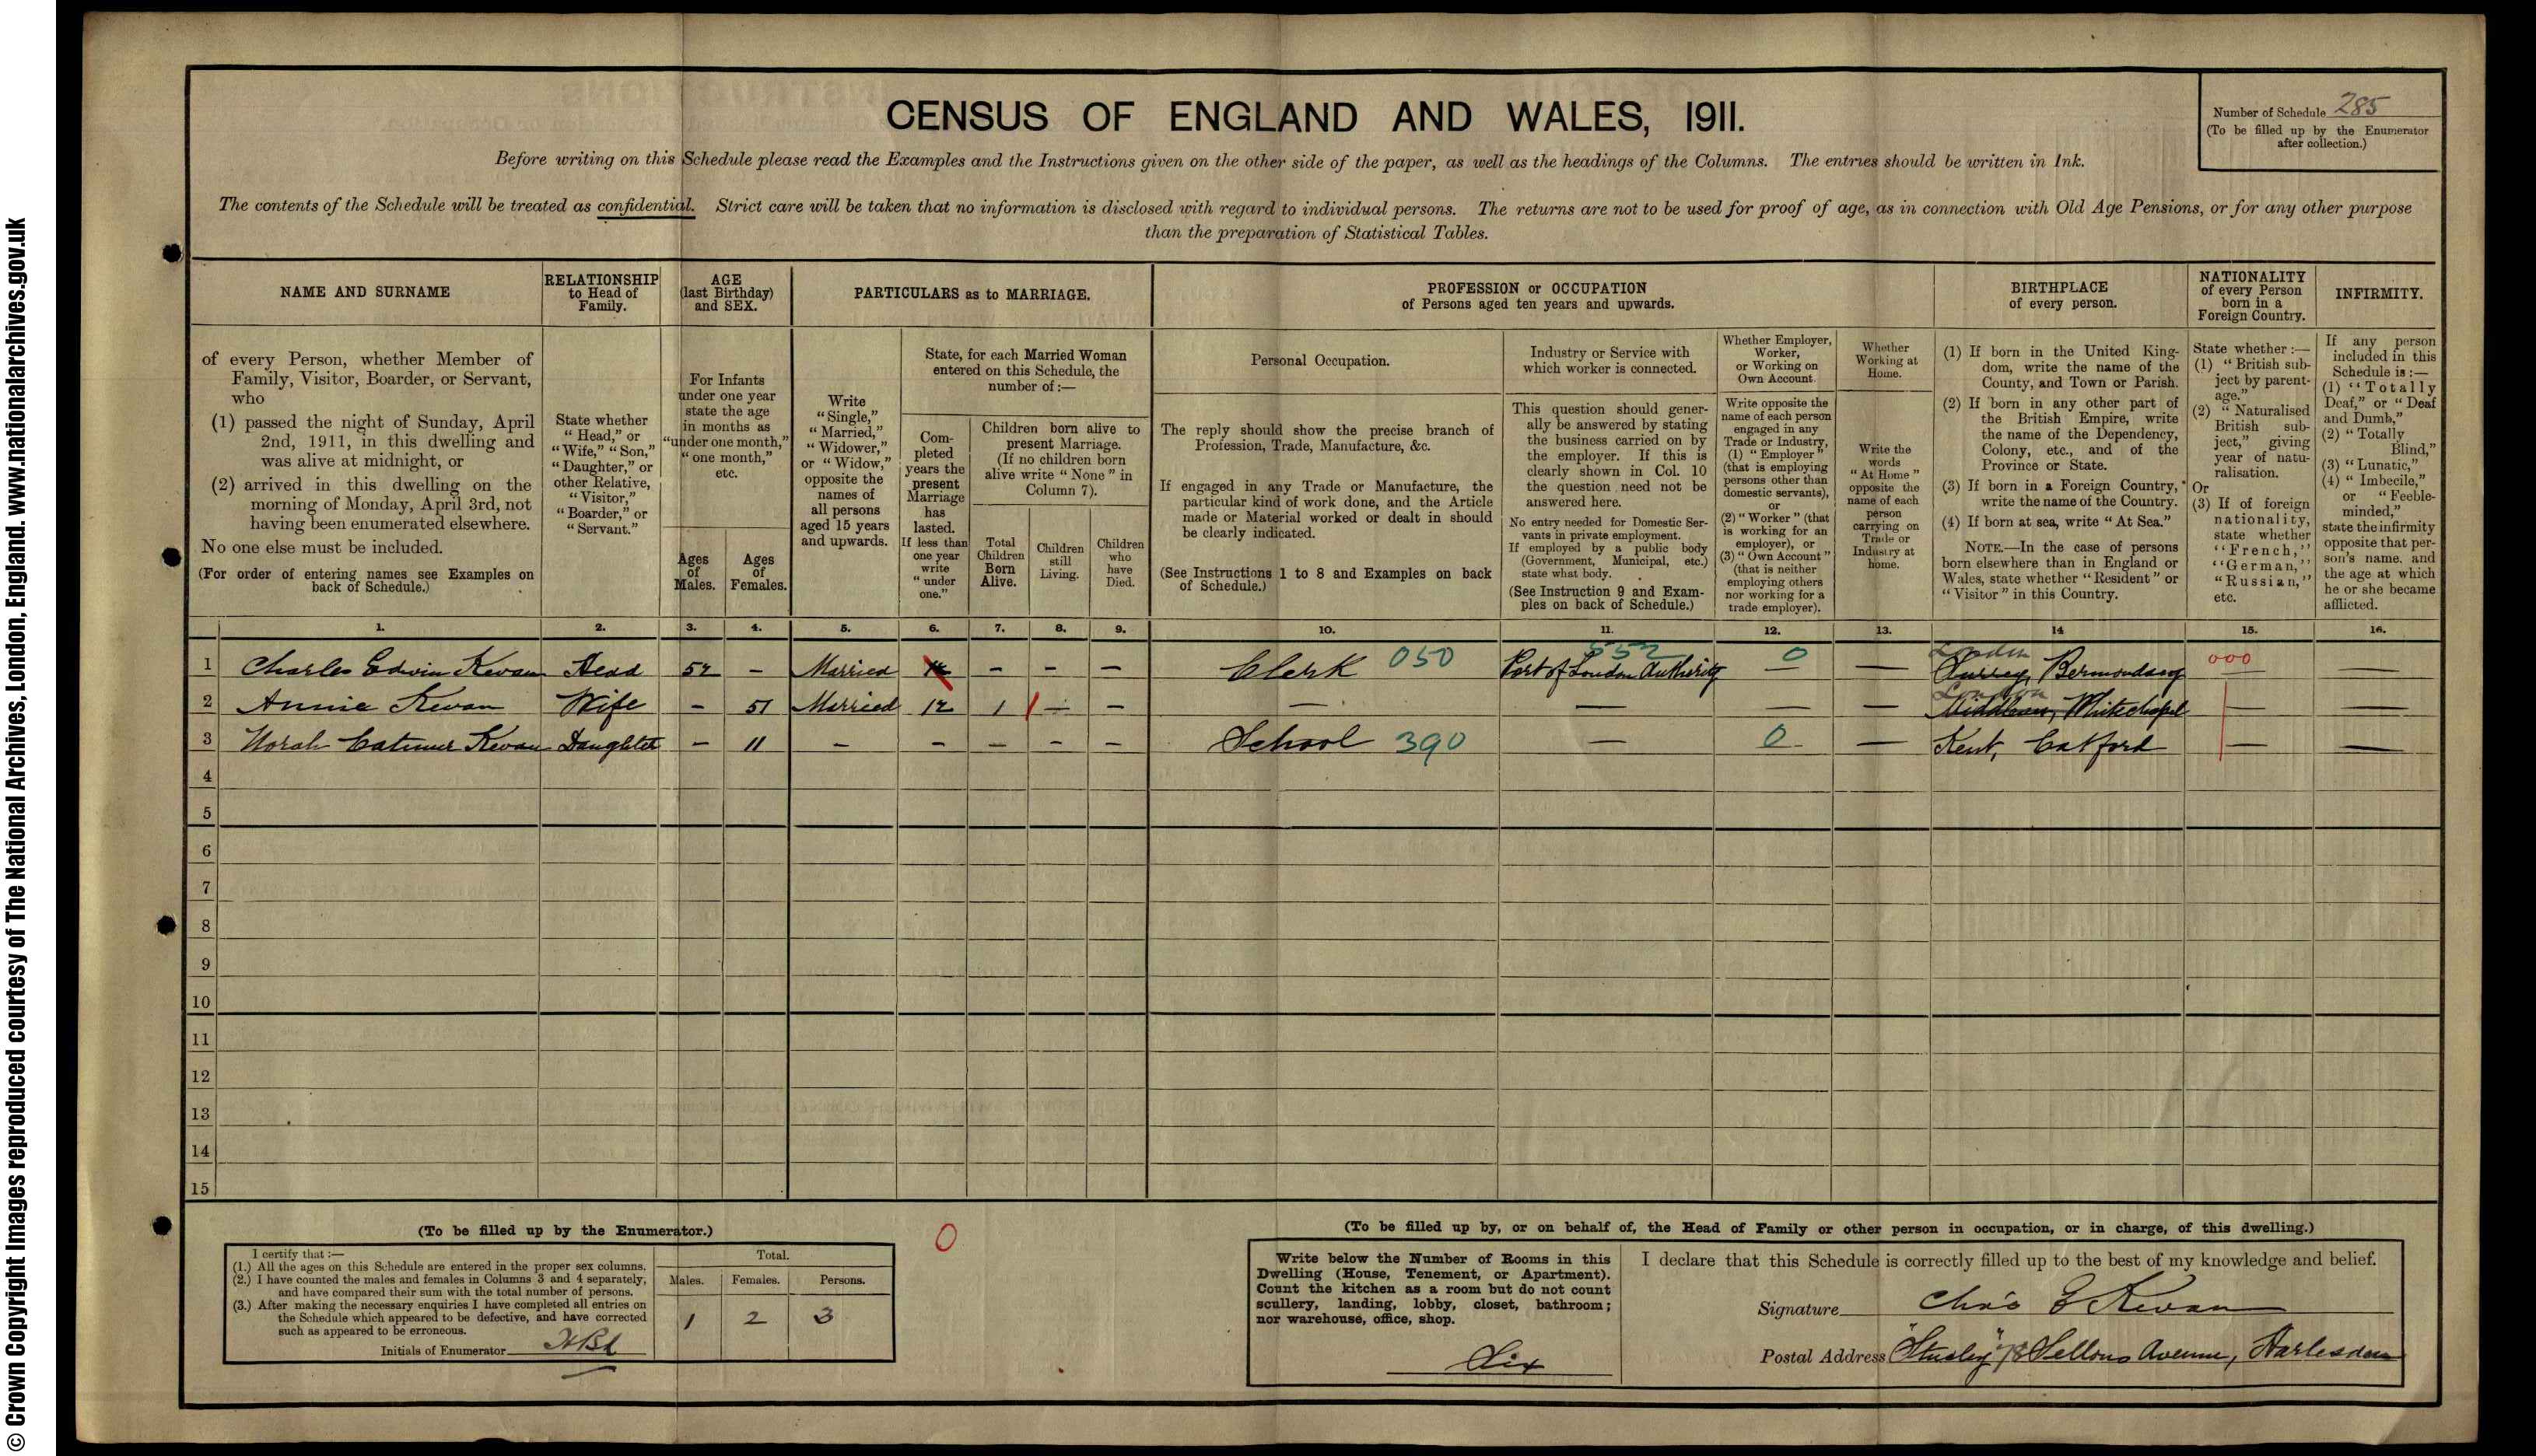 © Crown Copyright Images reproduced courtesy of The National Archives, London, England. www.nationalarchives.gov.uk
CENSUS OF ENGLAND AND WALES, 1911.
Number of Schedule 285
(To be filled up by the Enumerator
after collection.)
Before writing on this Schedule please read the Examples and the Instructions given on the other side of the paper, as well as the headings of the Columns. The entries should be written in Ink.
The contents of the Schedule will be treated as confidential. Strict care will be taken that no information is disclosed with regard to individual persons. The returns are not to be used for proof of age, as in connection with Old Age Pensions, or for any other purpose
than the preparation of Statistical Tables.
NAME AND SURNAME
of every Person, whether Member of
Family, Visitor, Boarder, or Servant,
who
(1) passed the night of Sunday, April
2nd, 1911, in this dwelling and
was alive at midnight, or
(2) arrived in this dwelling on the
morning of Monday, April 3rd, not
having been enumerated elsewhere.
No one else must be included.
(For order of entering names see Examples on
back of Schedule.)
RELATIONSHIP
to Head of
Family.
State whether
"Head," or
"Wife," "Son,"
"Daughter," or
other Relative,
"Visitor,"
"Boarder," or
"Servant."
AGE
(last Birthday)
and SEX.
For Infants
under one year
state the age
in months as
"under one month,"
"one month,"
etc.
Ages
of
Males.
Ages
of
Females.
PARTICULARS as to MARRIAGE.
Write
"Single,"
"Married,"
"Widower,"
or "Widow,"
opposite the
names of
all persons
aged 15 years
and upwards.
State, for each Married Woman
entered on this Schedule, the
number of:—
Com-
pleted
years the
present
Marriage
has
lasted.
If less than
one year
write
"under
one."
Children born alive to
present Marriage.
(If no children born
alive write "None" in
Column 7).
Total
Children
Born
Alive.
Children
still
Living.
Children
who
have
Died.
PROFESSION or OCCUPATION
of Persons aged ten years and upwards.
Personal Occupation.
The reply should show the precise branch of
Profession, Trade, Manufacture, &c.
If engaged in any Trade or Manufacture, the
particular kind of work done, and the Article
made or Material worked or dealt in should
be clearly indicated.
(See Instructions 1 to 8 and Examples on back
of Schedule.)
Industry or Service with
which worker is connected.
This question should gener-
ally be answered by stating
the business carried on by
the employer. If this is
clearly shown in Col. 10
the question need not be
answered here.
No entry needed for Domestic Ser-
vants in private employment.
If employed by a public body
(Government, Municipal, etc.)
state what body.
(See Instruction 9 and Exam-
ples on back of Schedule.)
Whether Employer,
Worker,
or Working on
Own Account.
Write opposite the
name of each person
engaged in any
Trade or Industry,
(1) "Employer"
(that is employing
persons other than
domestic servants),
or
(2) "Worker" (that
is working for an
employer), or
(3) "Own Account"
(that is neither
employing others
nor working for a
trade employer).
Whether
Working at
Home.
Write the
words
"At Home"
opposite the
name of each
person
carrying on
Trade or
Industry at
home.
BIRTHPLACE
of every person.
(1) If born in the United King-
dom, write the name of the
County, and Town or Parish.
(2) If born in any other part of
the British Empire, write
the name of the Dependency,
Colony, etc., and of the
Province or State.
(3) If born in a Foreign Country,
write the name of the Country.
(4) If born at sea, write "At Sea."
NOTE.—In the case of persons
born elsewhere than in England or
Wales, state whether "Resident" or
"Visitor" in this Country.
NATIONALITY
of every Person
born in a
Foreign Country.
State whether:—
(1) "British sub-
ject by parent-
age."
(2) "Naturalised
British sub-
ject," giving
year of natu-
ralisation.
Or
(3) If of foreign
nationality,
state whether
"French,"
"German,"
"Russian,"
etc.
INFIRMITY.
If any person
included in this
Schedule is:—
(1) "Totally
Deaf," or "Deaf
and Dumb,"
(2) "Totally
Blind,"
(3) "Lunatic,"
(4) "Imbecile,"
or "Feeble-
minded,"
state the infirmity
opposite that per-
son's name, and
the age at which
he or she became
afflicted.
1. 2. 3. 4. 5. 6. 7. 8. 9. 10. 11. 12. 13. 14 15. 16.
552 London
1 Charles Edwin Kevan Head 52 – Married 12 – – – Clerk 050 Port of London Authority — 0 — Surrey, Bermondsey 000 —
London
2 Annie Kevan Wife – 51 Married 12 1 1 – – — — — — Middlesex, Whitechapel — —
3 Norah Catmur Kevan Daughter – 11 – – – – – School 390 — 0 — Kent, Catford — —
4
5
6
7
8
9
10
11
12
13
14
15
(To be filled up by the Enumerator.)
I certify that:—
(1.) All the ages on this Schedule are entered in the proper sex columns.
(2.) I have counted the males and females in Columns 3 and 4 separately,
and have compared their sum with the total number of persons.
(3.) After making the necessary enquiries I have completed all entries on
the Schedule which appeared to be defective, and have corrected
such as appeared to be erroneous.
Initials of Enumerator
Total.
Males. Females. Persons.
1 2 3
0
(To be filled up by, or on behalf of, the Head of Family or other person in occupation, or in charge, of this dwelling.)
Write below the Number of Rooms in this
Dwelling (House, Tenement, or Apartment).
Count the kitchen as a room but do not count
scullery, landing, lobby, closet, bathroom;
nor warehouse, office, shop.
Six
I declare that this Schedule is correctly filled up to the best of my knowledge and belief.
Signature Chas E Kevan
Postal Address 78 Sellons Avenue, Harlesden